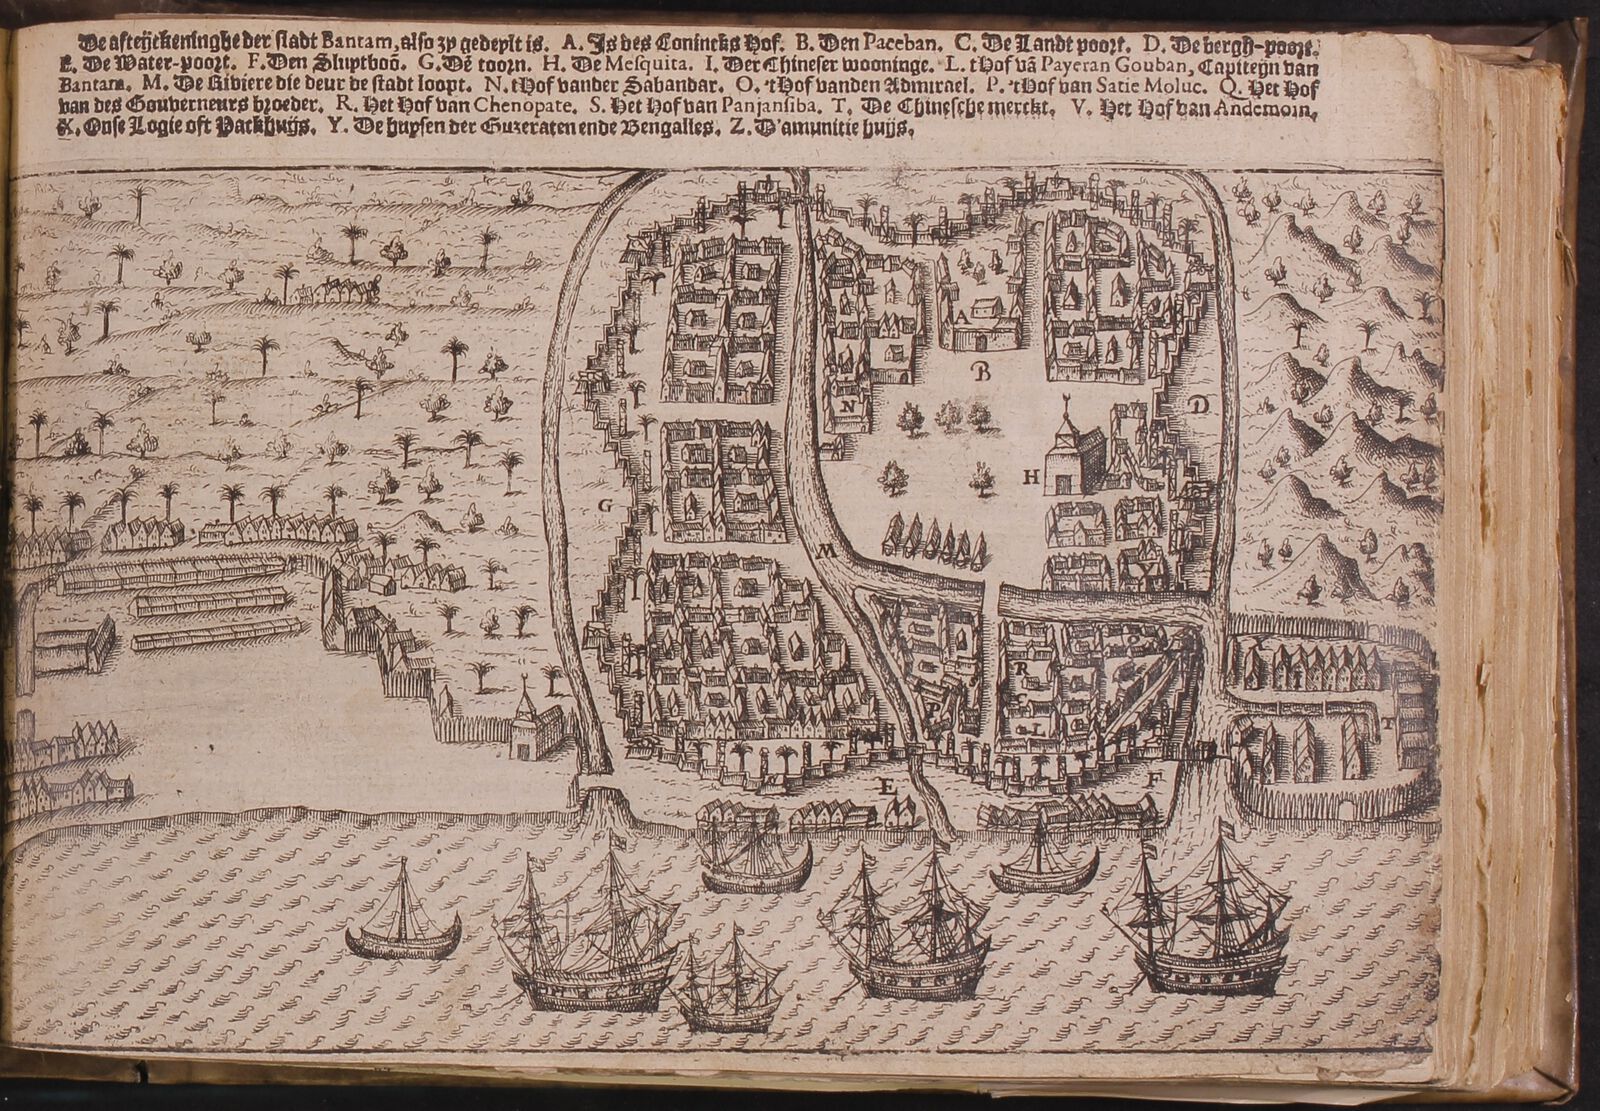 De afteijckeninghe der stadt Bantam, also zy gedeylt is. A. Is des Conincks Hof. B. Den Paceban. C. De Landt poort. D. De bergh-poort.
E. De Water-poort. F. Den Sluytboō. G. Dē toorn. H. De Mesquita. I. Der Chineser wooninge. L. tHof vā Payeran Gouban, Capiteyn van
Bantam. M. De Riviere die deur de stadt loopt. N. tHof vander Sabandar. O. 'tHof vanden Admirael. P. 'tHof van Satie Moluc. Q. Het Hof
van des Gouverneurs broeder. R. Het Hof van Chenopate. S. Het Hof van Panjansiba. T. De Chinesche merckt. V. Het Hof van Andemoin,
X. Onse Logie oft Packhuijs. Y. De huysen der Guzeraten ende Bengalles. Z. D'amunitie huijs.
A
B
N
D
H
G
M
Y
R
I
P
L
T
E
F